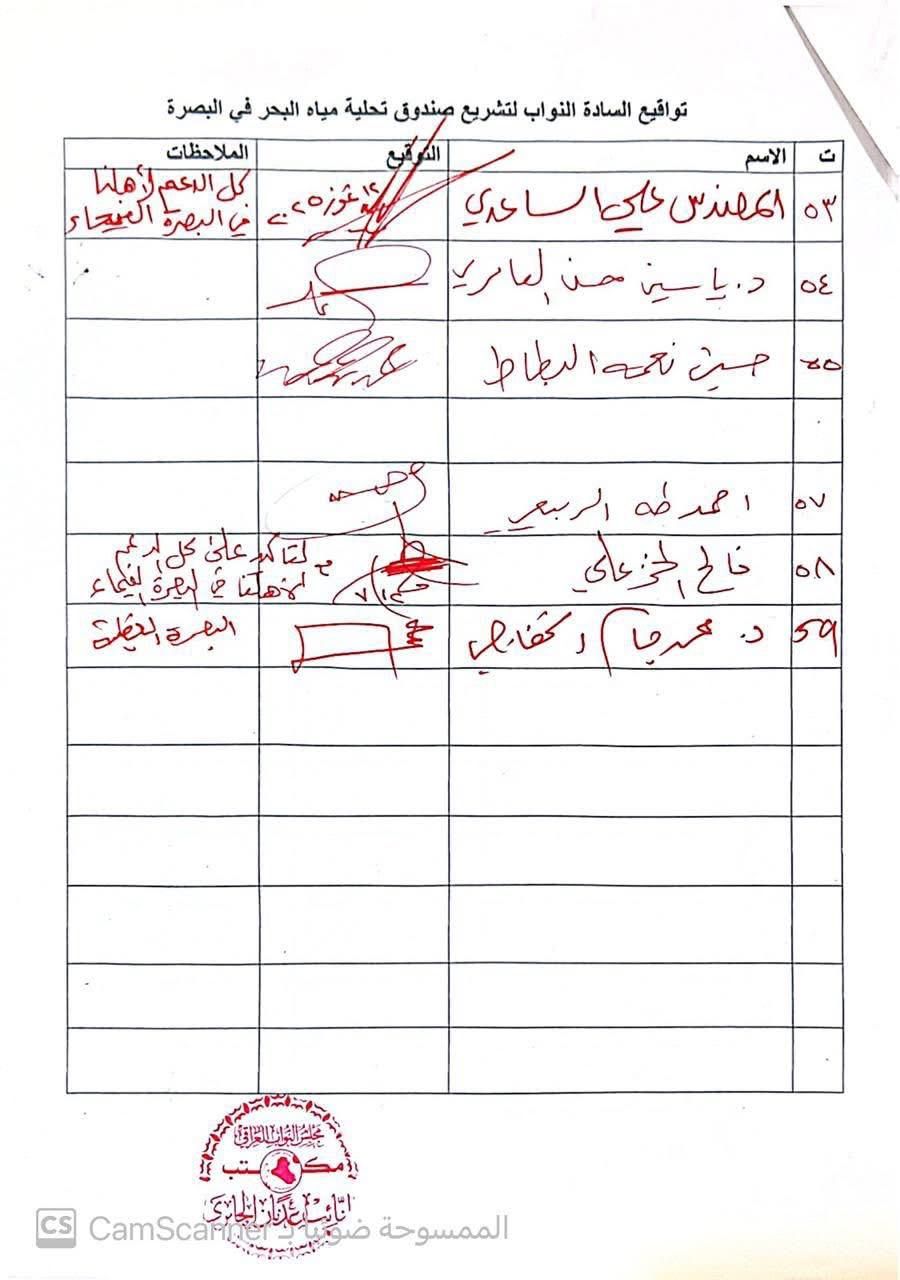 تواقيع السادة النواب لتشريع صندوق تحلية مياه البحر في البصرة
ت الاسم التوقيع الملاحظات
٥٣ المهندس علي الساعدي ١٢ تموز ٢٠٢٥ كل الدعم لأهلنا
في البصرة الفيحاء
٥٤ د. ياسين حسن العامري
٥٥ حسين نعمه البطاط
٥٧ احمد طه الربيعي
٥٨ فالح الخزعلي ٧/١٢ مع التأكيد على كل الدعم
لأهلنا في البصرة الفيحاء
٥٩ د. محمد البصرة العظيمة
مجلس النواب العراقي
مكتب
النائب عدنان الجابري
CS CamScanner الممسوحة ضوئيا بـ